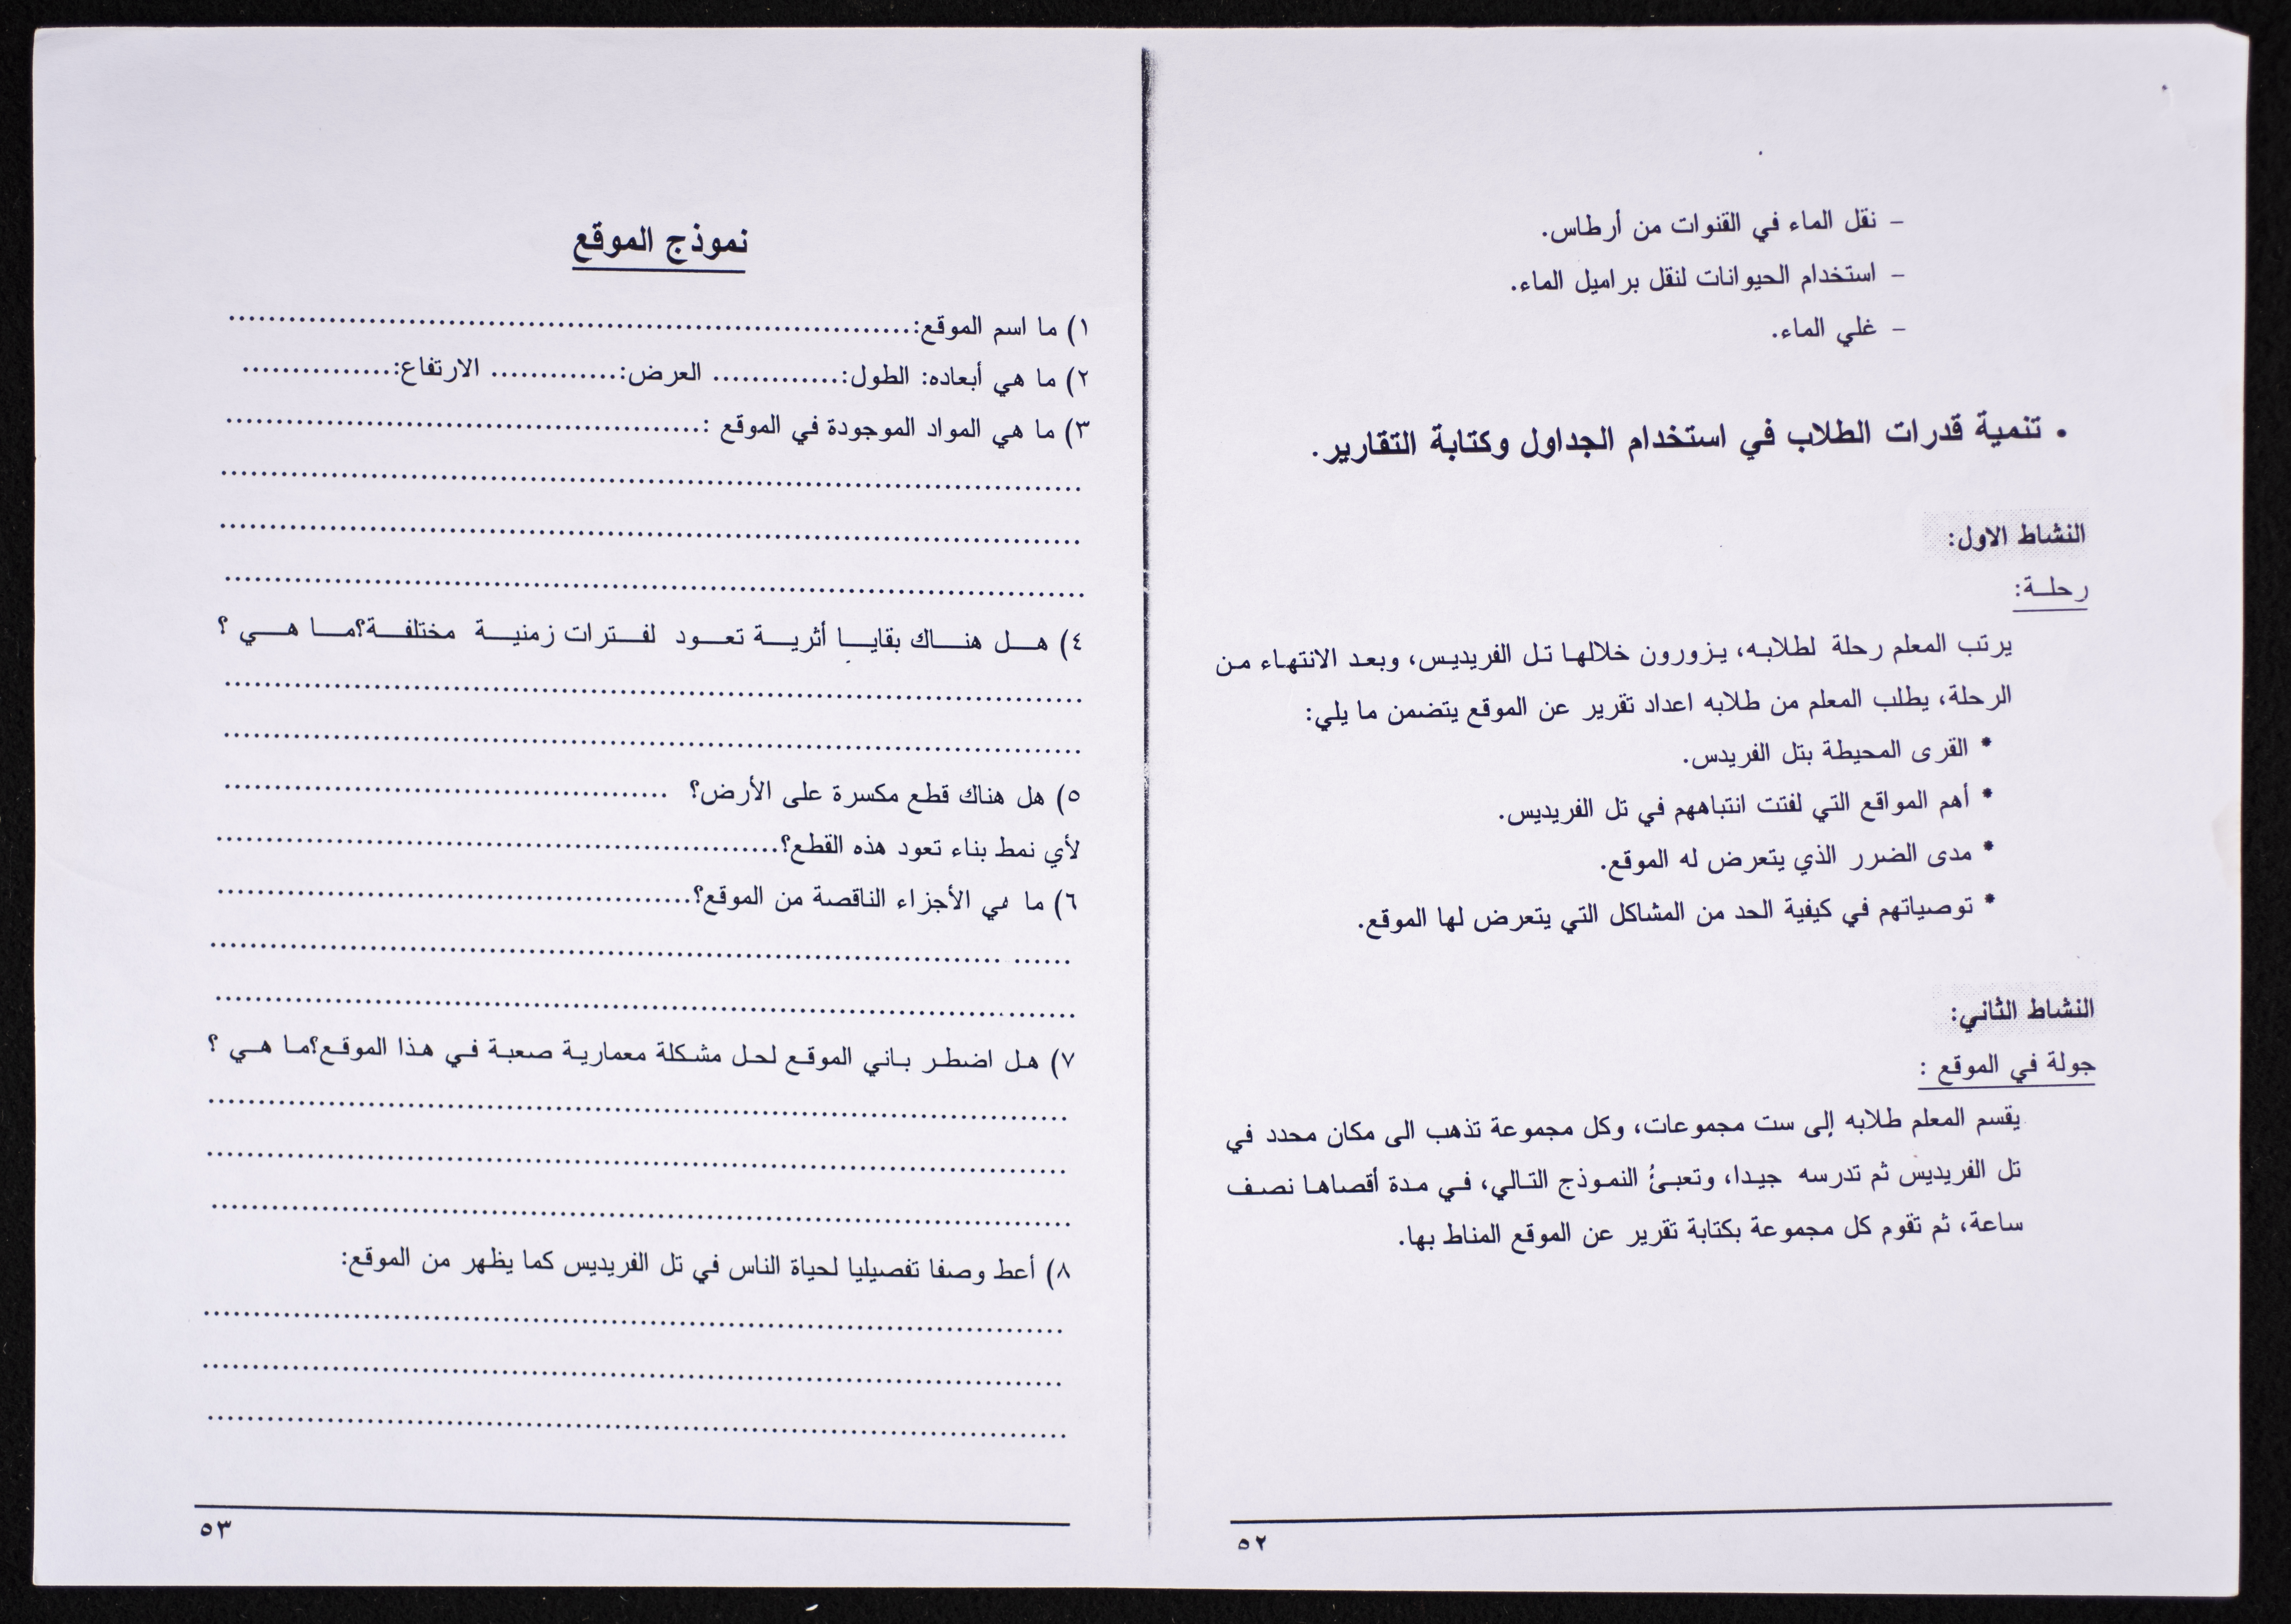 – نقل الماء في القنوات من أرطاس.
– استخدام الحيوانات لنقل براميل الماء.
– غلي الماء.
• تنمية قدرات الطلاب في استخدام الجداول وكتابة التقارير.
النشاط الاول:
رحلة:
يرتب المعلم رحلة لطلابه، يزورون خلالها تل الفريديس، وبعد الانتهاء من
الرحلة، يطلب المعلم من طلابه اعداد تقرير عن الموقع يتضمن ما يلي:
* القرى المحيطة بتل الفريدس.
* أهم المواقع التي لفتت انتباههم في تل الفريديس.
* مدى الضرر الذي يتعرض له الموقع.
* توصياتهم في كيفية الحد من المشاكل التي يتعرض لها الموقع.
النشاط الثاني:
جولة في الموقع :
يقسم المعلم طلابه إلى ست مجموعات، وكل مجموعة تذهب الى مكان محدد في
تل الفريديس ثم تدرسه جيدا، وتعبئ النموذج التالي، في مدة أقصاها نصف
ساعة، ثم تقوم كل مجموعة بكتابة تقرير عن الموقع المناط بها.
٥٢
نموذج الموقع
١) ما اسم الموقع:....................................................................
٢) ما هي أبعاده: الطول:............. العرض:............. الارتفاع:...............
٣) ما هي المواد الموجودة في الموقع :................................................
......................................................................................
......................................................................................
......................................................................................
٤) هل هناك بقايا أثرية تعود لفترات زمنية مختلفة؟ما هي ؟
......................................................................................
......................................................................................
٥) هل هناك قطع مكسرة على الأرض؟ .............................................
لأي نمط بناء تعود هذه القطع؟.........................................................
٦) ما هي الأجزاء الناقصة من الموقع؟................................................
......................................................................................
......................................................................................
٧) هل اضطر باني الموقع لحل مشكلة معمارية صعبة في هذا الموقع؟ما هي ؟
......................................................................................
......................................................................................
......................................................................................
٨) أعط وصفا تفصيليا لحياة الناس في تل الفريديس كما يظهر من الموقع:
......................................................................................
......................................................................................
......................................................................................
٥٣